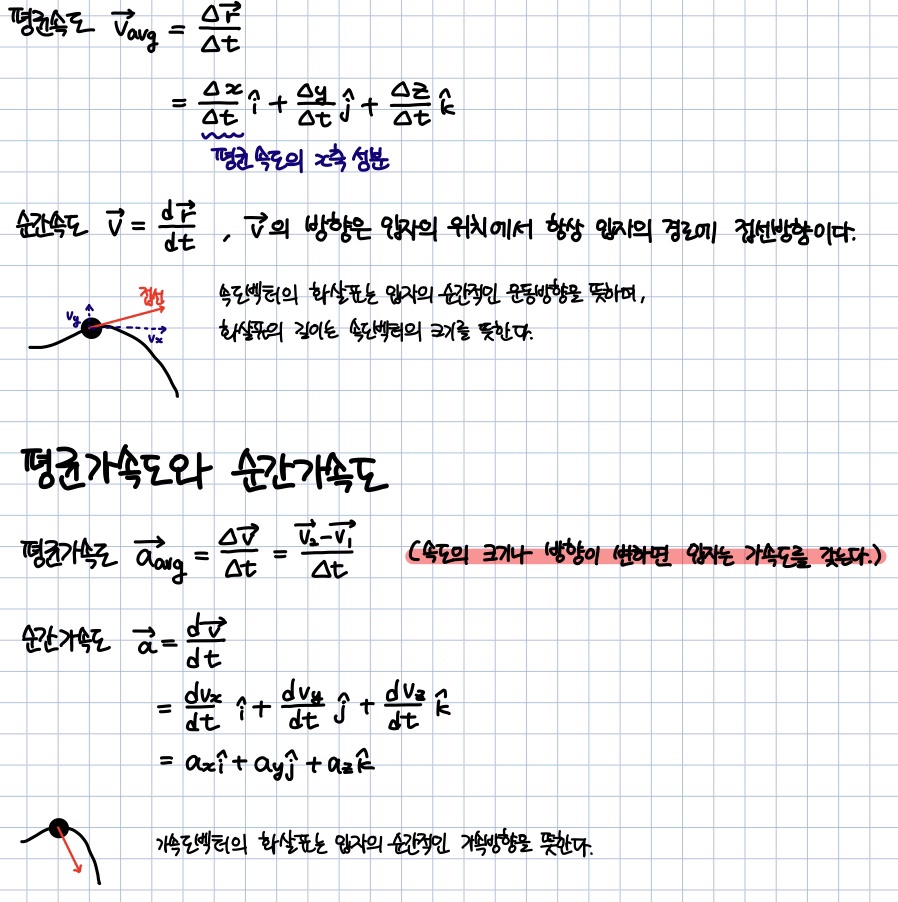 평균속도 v⃗avg = Δr⃗/Δt
= Δx/Δt î + Δy/Δt ĵ + Δz/Δt k̂
평균속도의 x축 성분
순간속도 v⃗ = dr⃗/dt , v⃗의 방향은 입자의 위치에서 항상 입자의 경로에 접선방향이다.
접선
vy
vx
속도벡터의 화살표는 입자의 순간적인 운동방향을 뜻하며,
화살표의 길이는 속도벡터의 크기를 뜻한다.
평균가속도와 순간가속도
평균가속도 a⃗avg = Δv⃗/Δt = v⃗2-v⃗1/Δt (속도의 크기나 방향이 변하면 입자는 가속도를 갖는다.)
순간가속도 a⃗ = dv⃗/dt
= dvx/dt î + dvy/dt ĵ + dvz/dt k̂
= axî + ayĵ + azk̂
가속도벡터의 화살표는 입자의 순간적인 가속방향을 뜻한다.